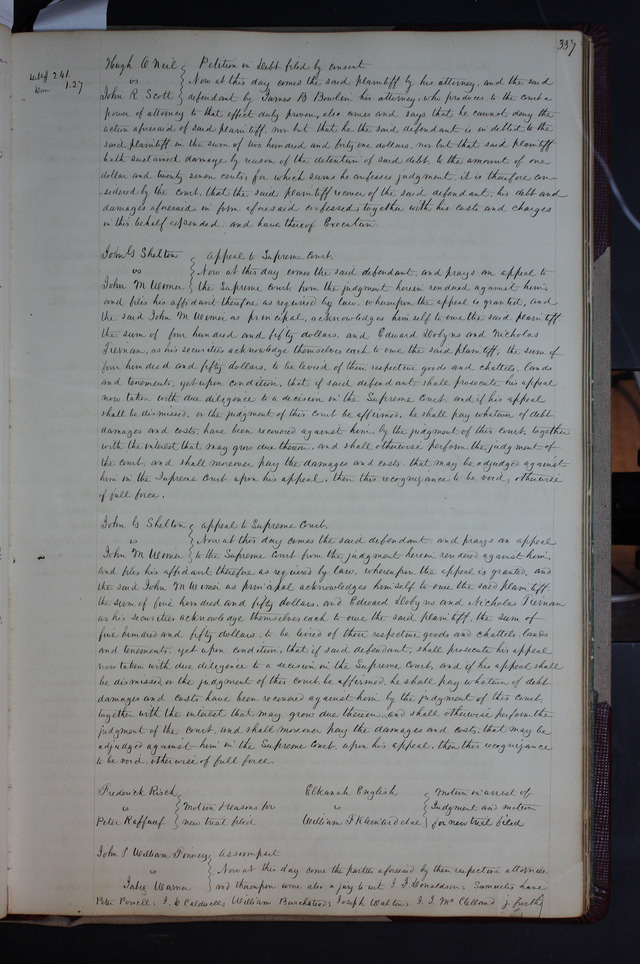 337
Hugh O'Neil } Petition in Debt filed by consent
vs } Now at this day comes the said plaintiff by his attorney, and the said
John R Scott } defendant by James B Bowlin his attorney, who produces to the court a
debt $ 241.
Dam 1.27
power of attorney to that effect duly proven, also comes and says that he cannot deny the
action aforesaid of said plaintiff, nor but that he the said defendant is indebted to the
said plaintiff in the sum of two hundred and forty one dollars, nor but that said plaintiff
hath sustained damage by reason of the detention of said debt, to the amount of one
dollar and twenty seven cents, for which sums he confesses judgment, it is therefore con-
sidered by the court, that the said plaintiff recover of the said defendant, his debt and
damages aforesaid in form aforesaid confessed, together with his costs and charges
in this behalf expended, and have thereof Execution.
John G Shelton } appeal to Supreme Court.
vs } Now at this day comes the said defendant, and prays an appeal to
John M Wimer } the Supreme Court from the judgment herein rendered against him,
and files his affidavit therefore as required by law, whereupon the appeal is granted, and
the said John M Wimer as principal, acknowledges himself to owe the said plaintiff
the sum of four hundred and fifty dollars, and Edward Dobyns and Nicholas
Tiernan, as his securities acknowledge themselves each to owe the said plaintiff, the sum of
four hundred and fifty dollars, to be levied of their respective goods and chattels, lands
and tenements, yet upon condition, that if said defendant shall prosecute his appeal
now taken with due diligence to a decision in the Supreme Court and if his appeal
shall be dismissed, or the judgment of this court be affirmed, he shall pay whatever of debt
damages and costs, have been recovered against him by the judgment of this court, together
with the interest that may grow due thereon, and shall otherwise perform the judgment of
the court, and shall moreover pay the damages and costs that may be adjudged against
him in the Supreme Court upon his appeal, then this recognizance to be void, otherwise
of full force.
John G Shelton } appeal to Supreme Court.
vs } Now at this day comes the said defendant and prays an appeal
John M Wimer } to the Supreme Court from the judgment herein rendered against him,
and files his affidavit therefore as required by law, whereupon the appeal is granted, and
the said John M Wimer as principal acknowledges himself to owe the said plaintiff
the sum of five hundred and fifty dollars, and Edward Dobyns and Nicholas Tiernan
as his securities acknowledge themselves each to owe the said plaintiff, the sum of
five hundred and fifty dollars, to be levied of their respective goods and chattels, lands
and tenements, yet upon condition, that if said defendant, shall prosecute his appeal
now taken with due diligence to a decision in the Supreme Court, and if his appeal shall
be dismissed or the judgment of this court, be affirmed, he shall pay whatever of debt
damages and costs have been recovered against him by the judgment of this court,
together with the interest that may grow due thereon, and shall otherwise perform the
judgment of the court, and shall moreover pay the damages and costs, that may be
adjudged against him in the Supreme Court upon his appeal, then this recognizance
to be void, otherwise of full force.
Frederick Risch
vs } Motion & reasons for
Peter Kaffnef } new trial filed
Elkanah English } Motion in arrest of
vs } Judgment and motion
William T Kleinard else } for new trial filed
John & William Finney } assumpsit
vs } Now at this day come the parties aforesaid by their respective attornies
Jabez Warner } and thereupon come also a jury to wit
Peter Powell; J. C Caldwell; William Burchsted; Joseph Walton;